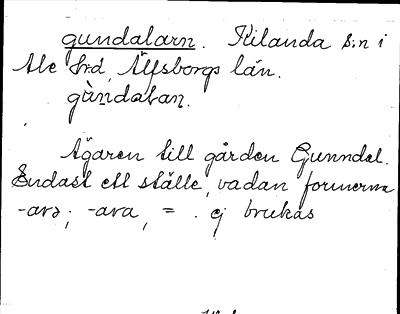 gundalarn. Kilanda s:n i
Ale hrd, Älfsborgs län.
gùndalan.
Ägaren till gården Gunndal.
Endast ett ställe, vadan formerna
-arə; -ara, = . ej brukas